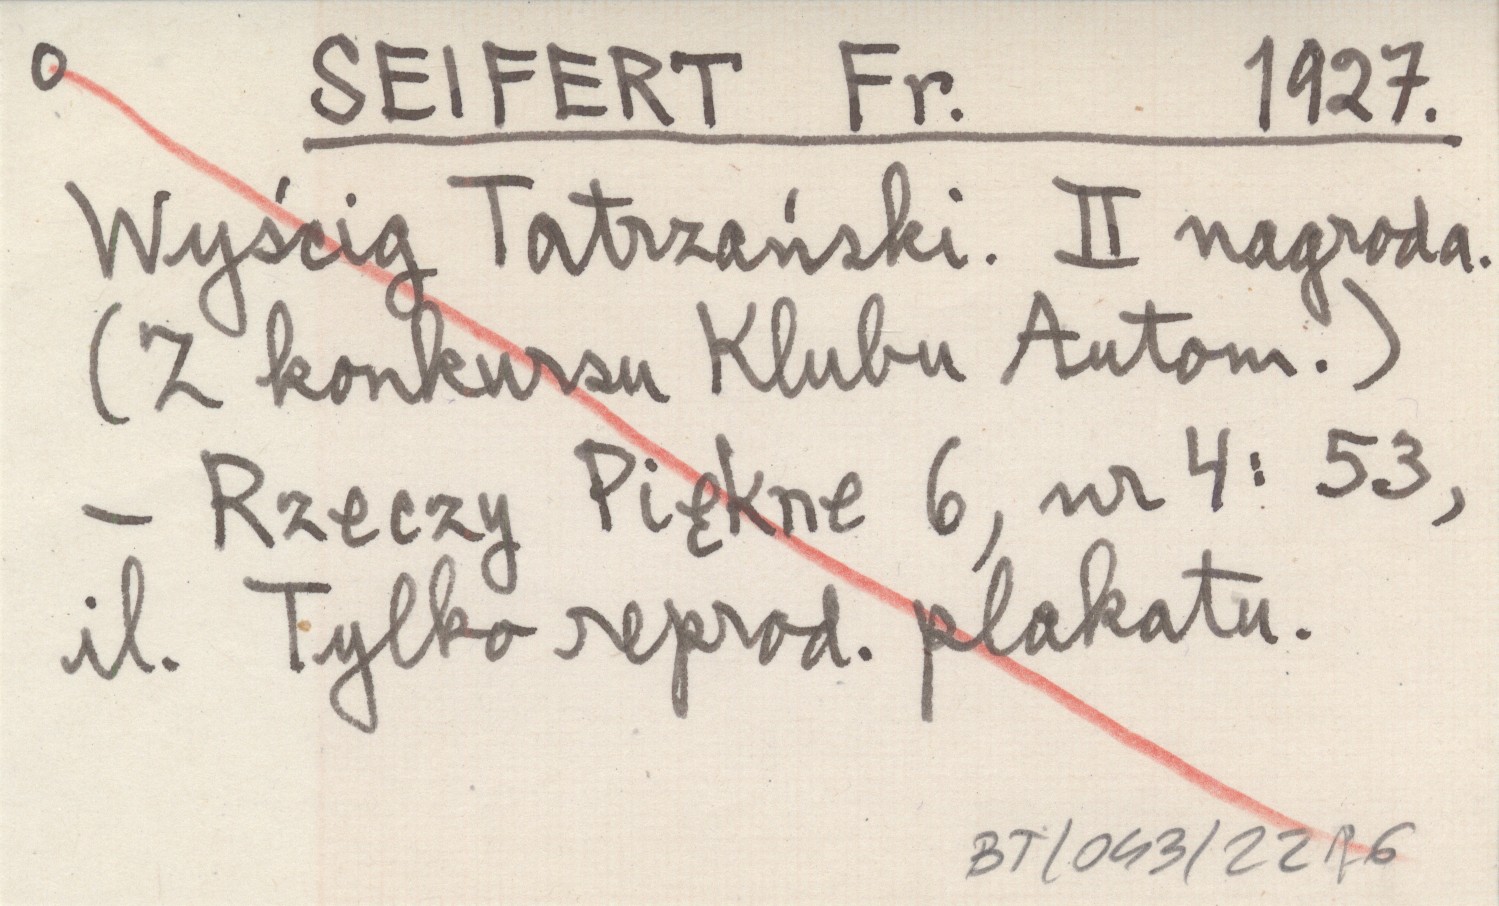 o SEIFERT Fr. 1927.
Wyścig Tatrzański. II nagroda.
(Z konkursu Klubu Autom.)
- Rzeczy Piękne 6, nr 4: 53,
il. Tylko reprod. plakatu.
BT/043/22